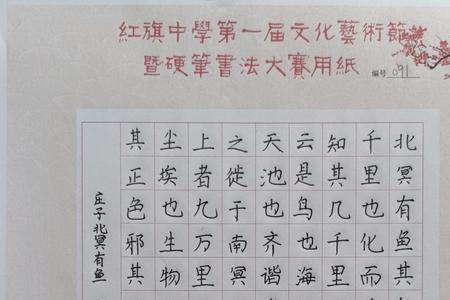 紅旗中學第一届文化藝術節
暨硬筆書法大賽用紙
编号 091
北冥有鱼其
千里也化而
知其几千里
云是鸟也海
天池也齐谐
之徙于南冥
上者九万里
尘埃也生物
其正色邪其
庄子北冥有鱼